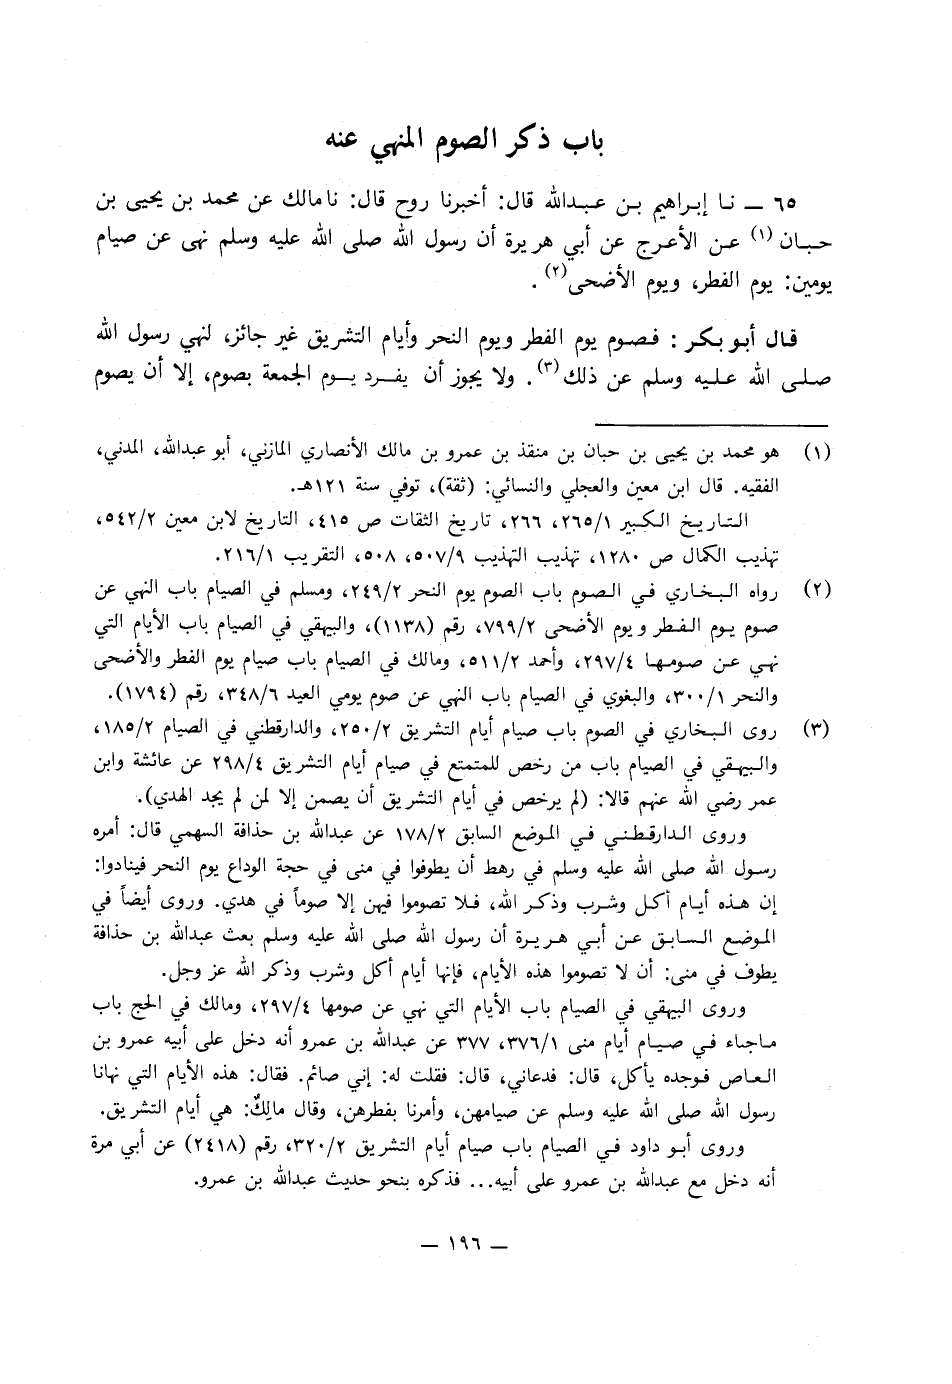 باب ذكر الصوم المنهي عنه
٦٥ — نا إبراهيم بن عبدالله قال: أخبرنا روح قال: نا مالك عن محمد بن يحيى بن
حبان (١) عن الأعرج عن أبي هريرة أن رسول الله صلى الله عليه وسلم نهى عن صيام
يومين: يوم الفطر، ويوم الأضحى(٢).
قال أبو بكر : فصوم يوم الفطر ويوم النحر وأيام التشريق غير جائز، لنهي رسول الله
صلى الله عليه وسلم عن ذلك(٣). ولا يجوز أن يفرد يوم الجمعة بصوم، إلا أن يصوم
(١) هو محمد بن يحيى بن حبان بن منقذ بن عمرو بن مالك الأنصاري المازني، أبو عبدالله، المدني،
الفقيه. قال ابن معين والعجلي والنسائي: (ثقة)، توفي سنة ١٢١هـ.
التاريخ الكبير ٢٦٥/١، ٢٦٦، تاريخ الثقات ص ٤١٥، التاريخ لابن معين ٥٤٢/٢،
تهذيب الكمال ص ١٢٨٠، تهذيب التهذيب ٥٠٧/٩، ٥٠٨، التقريب ٢١٦/١.
(٢) رواه البخاري في الصوم باب الصوم يوم النحر ٢٤٩/٢، ومسلم في الصيام باب النهي عن
صوم يوم الفطر ويوم الأضحى ٧٩٩/٢، رقم (١١٣٨)، والبيهقي في الصيام باب الأيام التي
نهي عن صومها ٢٩٧/٤، وأحمد ٥١١/٢، ومالك في الصيام باب صيام يوم الفطر والأضحى
والنحر ٣٠٠/١، والبغوي في الصيام باب النهي عن صوم يومي العيد ٣٤٨/٦، رقم (١٧٩٤).
(٣) روى البخاري في الصوم باب صيام أيام التشريق ٢٥٠/٢، والدارقطني في الصيام ١٨٥/٢،
والبيهقي في الصيام باب من رخص للمتمتع في صيام أيام التشريق ٢٩٨/٤ عن عائشة وابن
عمر رضي الله عنهم قالا: (لم يرخص في أيام التشريق أن يصمن إلا لمن لم يجد الهدي).
وروى الدارقطني في الموضع السابق ١٧٨/٢ عن عبدالله بن حذافة السهمي قال: أمره
رسول الله صلى الله عليه وسلم في رهط أن يطوفوا في منى في حجة الوداع يوم النحر فينادوا:
إن هذه أيام أكل وشرب وذكر الله، فلا تصوموا فيهن إلا صوماً في هدي. وروى أيضاً في
الموضع السابق عن أبي هريرة أن رسول الله صلى الله عليه وسلم بعث عبدالله بن حذافة
يطوف في منى: أن لا تصوموا هذه الأيام، فإنها أيام أكل وشرب وذكر الله عز وجل.
وروى البيهقي في الصيام باب الأيام التي نهي عن صومها ٢٩٧/٤، ومالك في الحج باب
ماجاء في صيام أيام منى ٣٧٦/١، ٣٧٧ عن عبدالله بن عمرو أنه دخل على أبيه عمرو بن
العاص فوجده يأكل، قال: فدعاني، قال: فقلت له: إني صائم. فقال: هذه الأيام التي نهانا
رسول الله صلى الله عليه وسلم عن صيامهن، وأمرنا بفطرهن، وقال مالِكٌ: هي أيام التشريق.
وروى أبو داود في الصيام باب صيام أيام التشريق ٣٢٠/٢، رقم (٢٤١٨) عن أبي مرة
أنه دخل مع عبدالله بن عمرو على أبيه... فذكره بنحو حديث عبدالله بن عمرو.
— ١٩٦ —